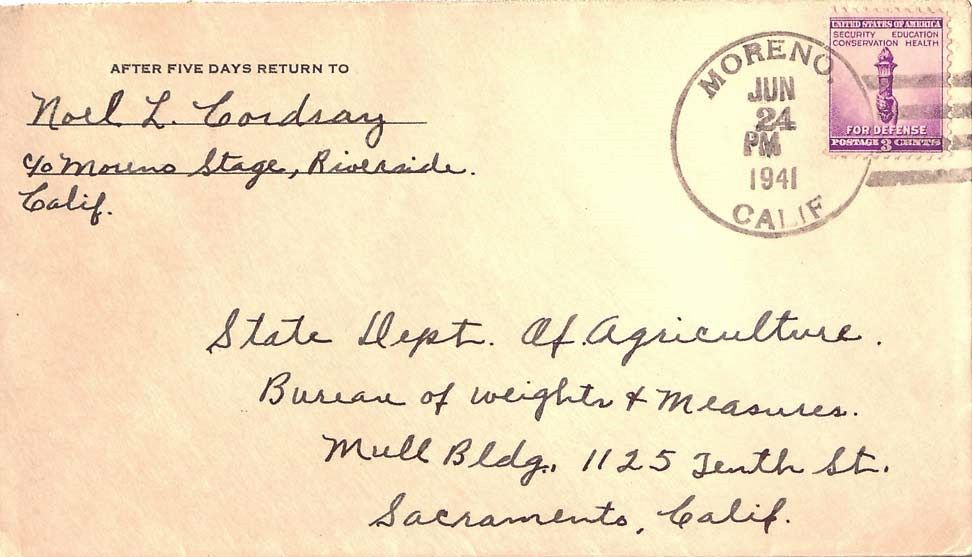 AFTER FIVE DAYS RETURN TO
Noel L. Cordray
c/o Moreno Stage, Riverside.
Calif.
MORENO,
JUN
24
PM
1941
CALIF
UNITED STATES OF AMERICA
SECURITY EDUCATION
CONSERVATION HEALTH
FOR DEFENSE
POSTAGE 3 CENTS
State Dept. Of. Agriculture.
Bureau of weights & Measures.
Mull Bldg., 1125 Tenth St.
Sacramento, Calif.